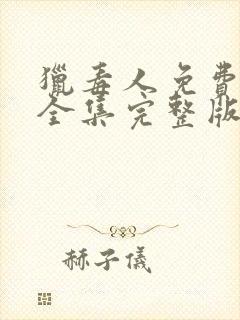 獵毒人免費
全集完整版
赫子儀